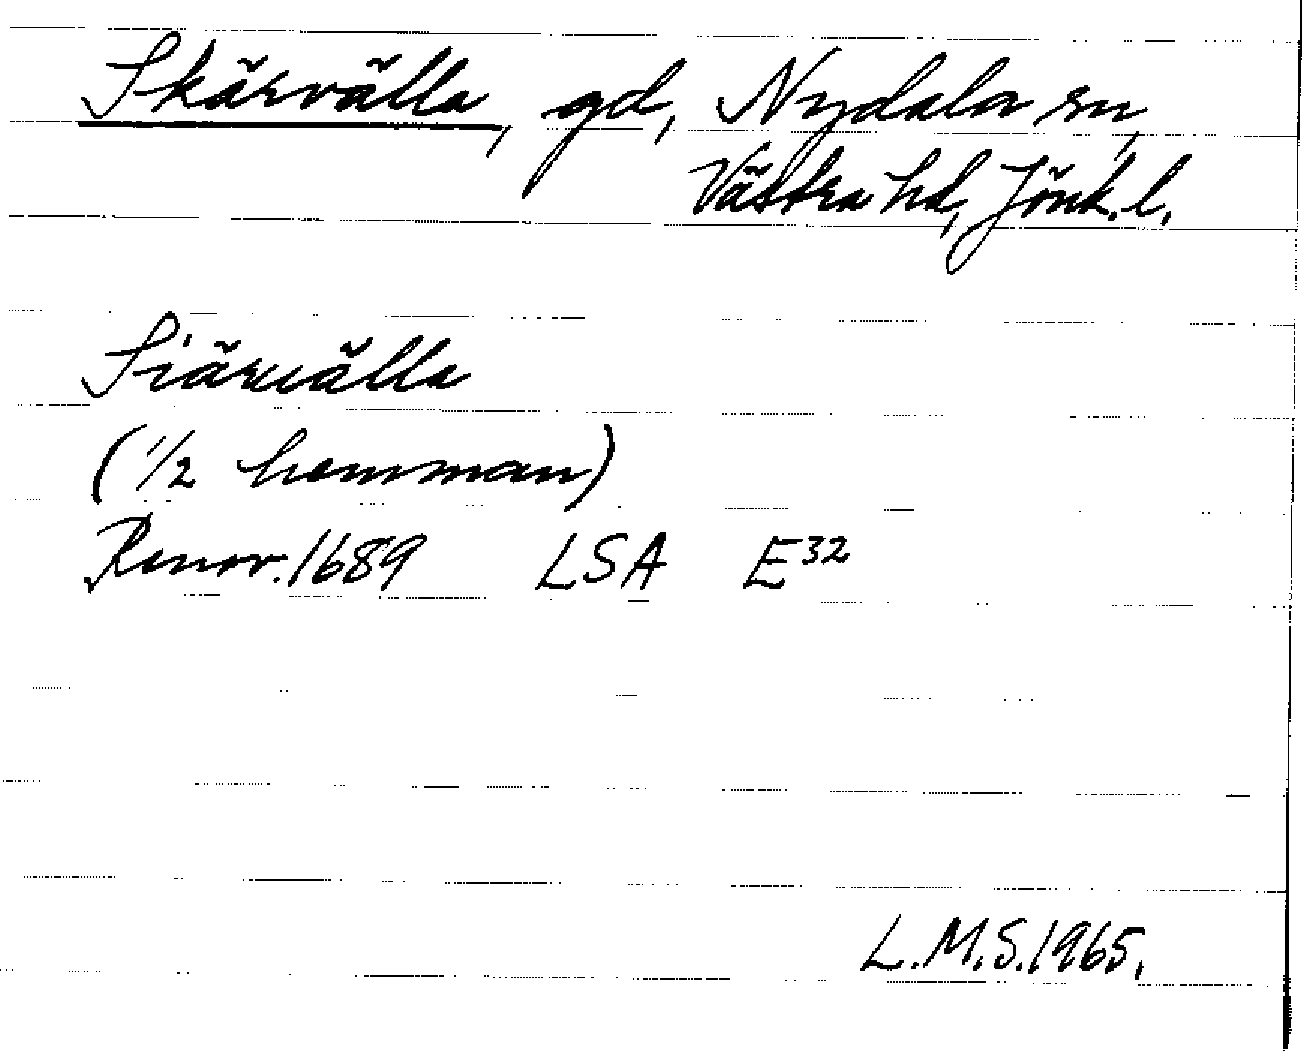 Skärvälla, gd, Nydala sn,
Västra hd, Jönk. l.
Siäruälla
(1/2 hemman)
Renov. 1689 LSA E32
L.M.S. 1965.